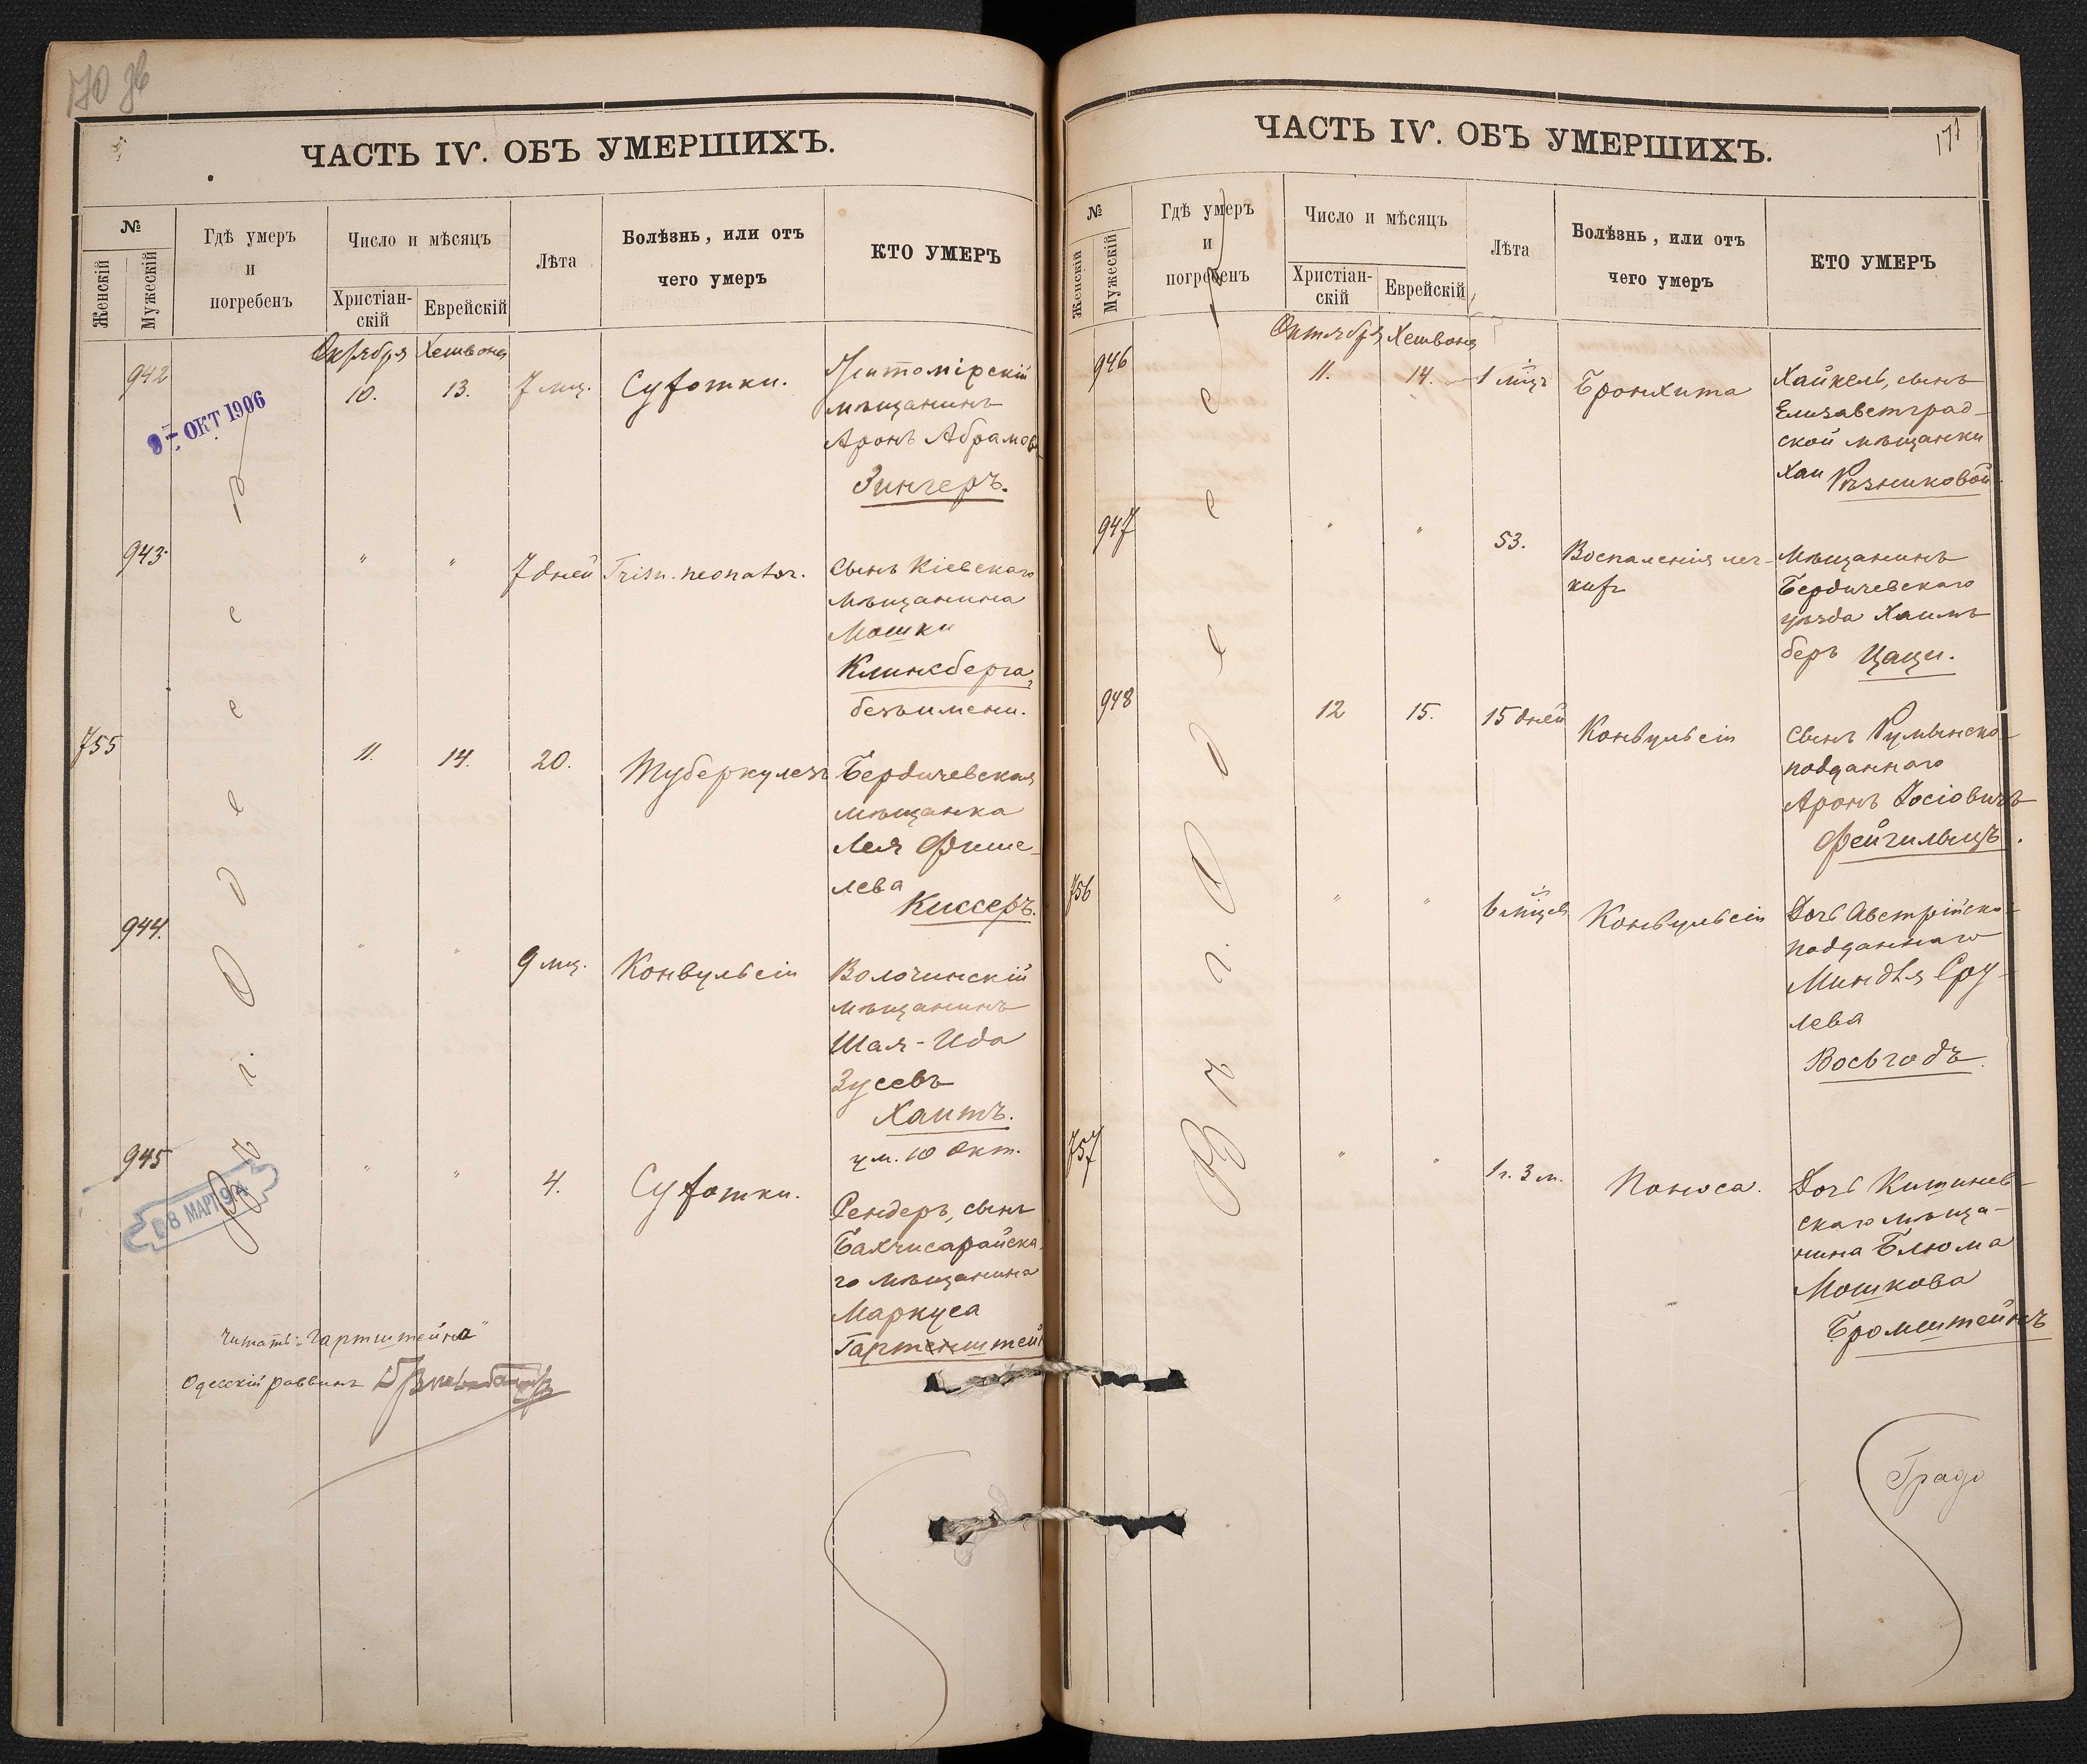 170 зв
ЧАСТЬ IV. ОБЪ УМЕРШИХЪ.
№
Женскій
Мужескій
Гдѣ умеръ
и
погребенъ
Число и мѣсяцъ
Христіан-
скій
Еврейскій
Лѣта
Болѣзнь, или отъ
чего умеръ
КТО УМЕРЪ
Октября Хешвона
942
10.
13.
7 мц.
Сухотки.
Житомірскій
мѣщанинъ
Аронъ Абрамовъ
Зингеръ.
9- ОКТ 1906
943
"
"
7 дней
Trism. neonator.
Сынъ Кіевскаго
мѣщанина
Мошки
Клинкберга,
безъ имени.
755
11.
14.
20.
Туберкулезъ
Бердичевская
мѣщанка
Лея Фише-
лева
Киссеръ.
944.
"
"
9 мц.
Конвульсіи
Волочинскій
мѣщанинъ
Шая-Ида
Зусевъ
Хаитъ.
ум. 10 Окт.
945
"
"
4.
Сухотки.
Сендеръ, сынъ
Бахчисарайска-
го мѣщанина
Маркуса
Гартенштей
Въ г. Одессе
8 МАРТ 94
Читать: „Гартштейна"
Одесскій раввинъ
171
ЧАСТЬ IV. ОБЪ УМЕРШИХЪ.
№
Женскій
Мужескій
Гдѣ умеръ
и
погребенъ
Число и мѣсяцъ
Христіан-
скій
Еврейскій
Лѣта
Болѣзнь, или отъ
чего умеръ
КТО УМЕРЪ
Октября Хешвона
946
11.
14.
1 мцъ
Бронхита
Хайкель, сынъ
Елисаветград-
ской мѣщанки
Хаи Рѣзниковой.
947
"
"
53.
Воспаленія лег-
кихъ
Мѣщанинъ
Бердичевскаго
уѣзда Хаимъ
беръ Цаци.
948
12
15.
15 дней
Конвульсіи
Сынъ Румынско-
подданнаго
Аронъ Іосіовичъ
Фейгильицъ.
756
"
"
6 мцев
Конвульсіи
Дочь Австрійско-
подданнаго
Миндля Сру-
лева
Восьгодъ.
757
"
"
1 г. 3 м.
Поноса.
Дочь Кишинев-
скаго мѣща-
нина Блюма
Мошкова
Бромштейнъ
Въ г. Одессе
Градо